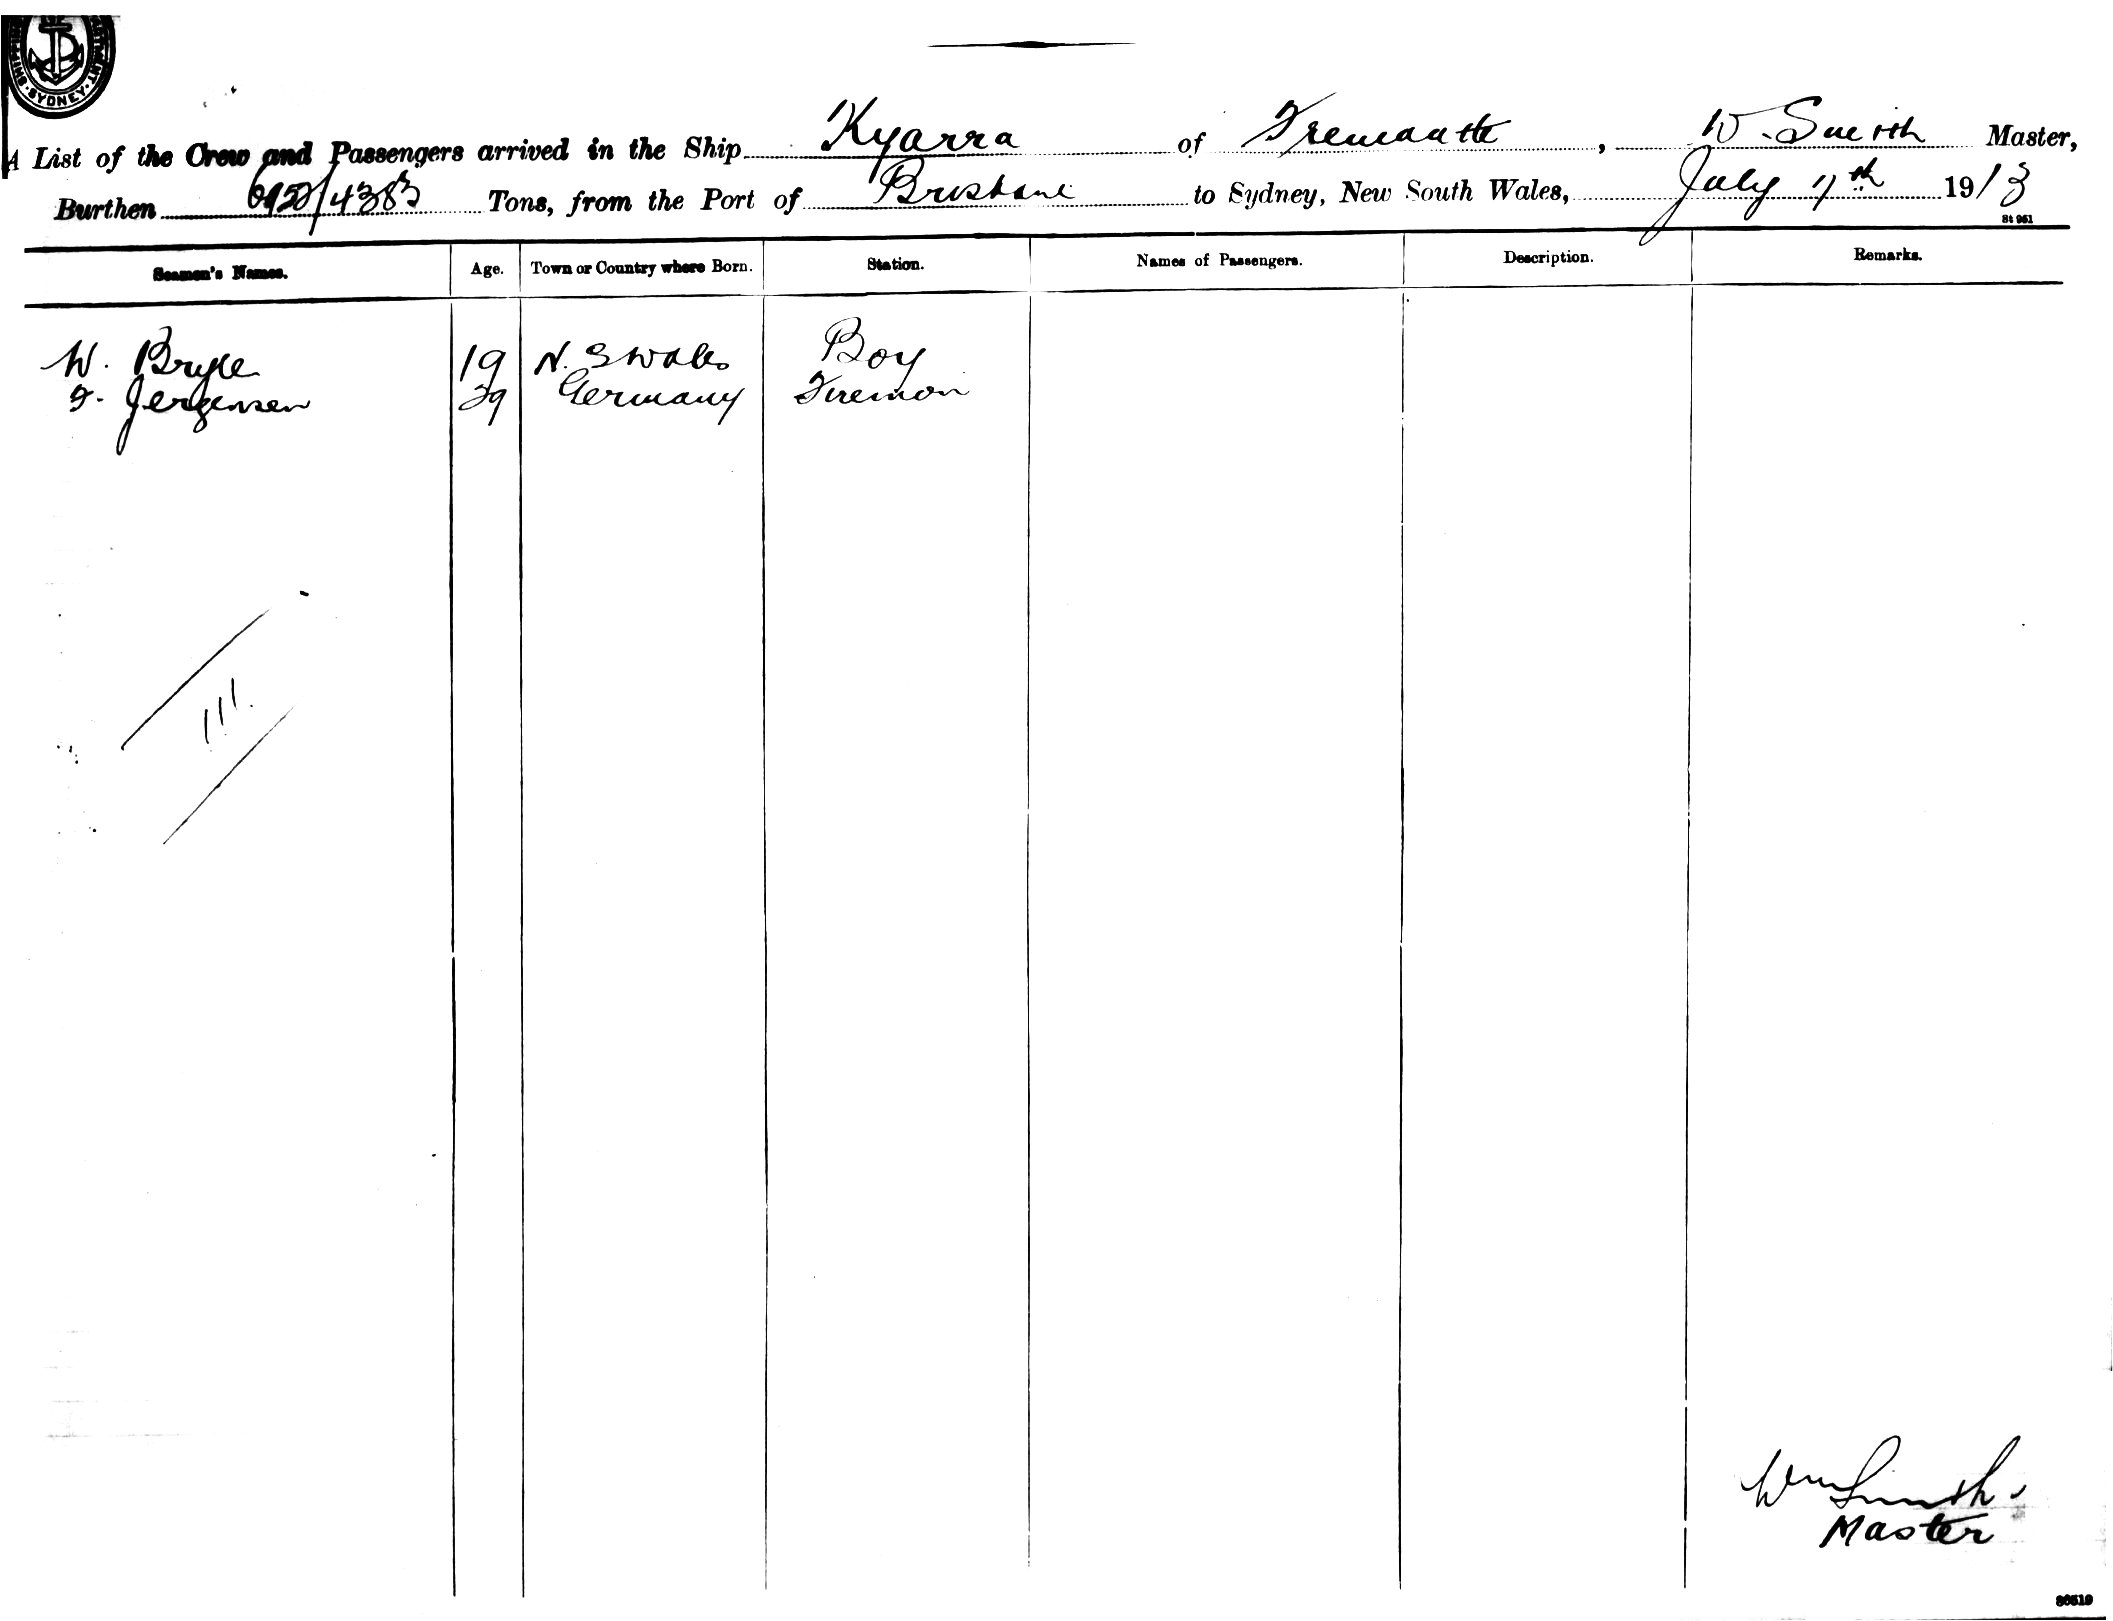 SYDNEY
A List of the Crew and Passengers arrived in the Ship Kyarra of Fremantle, W. Smith Master,
Burthen 6953/4383 Tons, from the Port of Brisbane to Sydney, New South Wales, July 7th 1913
St 961
Seamen's Names. Age. Town or Country where Born. Station. Names of Passengers. Description. Remarks.
W. Bryce 19 N. S Wales Boy
F. Jergensen 39 Germany Fireman
111.
Wm Smith.
Master
86519